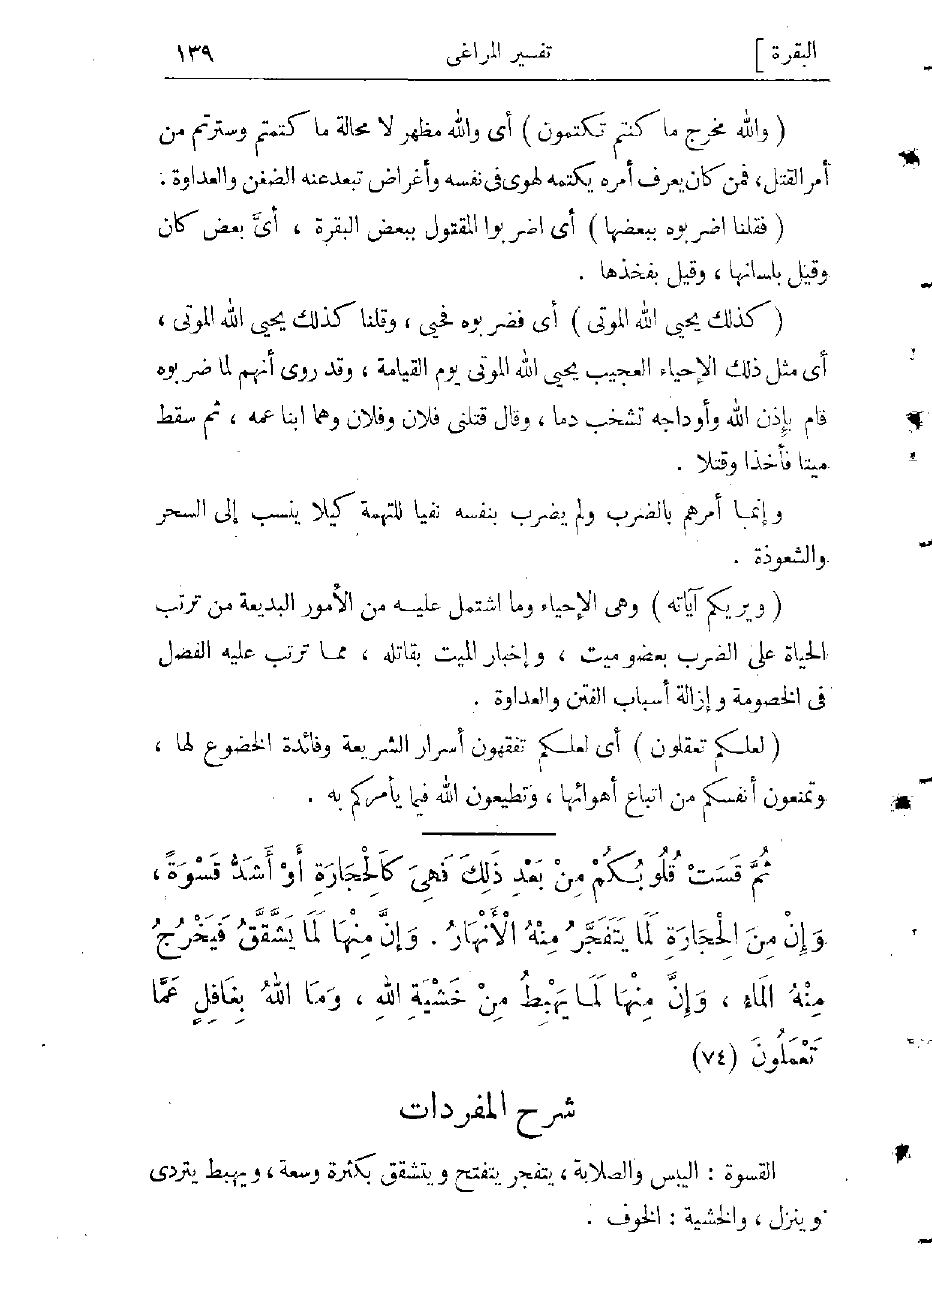 البقرة ] تفسير المراغى ١٣٩
( والله مخرج ما كنتم تكتمون ) أى والله مظهر لا محالة ما كتمتم وسترتم من
أمر القتل، فمن كان يعرف أمره يكتمه لهوى فى نفسه وأغراض تبعد عنه الضغن والعداوة .
( فقلنا اضربوه ببعضها ) أى اضربوا المقتول ببعض البقرة ، أىَّ بعض كان
وقيل بلسانها ، وقيل بفخذها .
( كذلك يحيى الله الموتى ) أى فضربوه فحيى ، وقلنا كذلك يحيى الله الموتى ،
أى مثل ذلك الإحياء العجيب يحيى الله الموتى يوم القيامة ، وقد روى أنهم لما ضربوه
قام بإذن الله وأوداجه تشخب دما ، وقال قتلنى فلان وفلان وهما ابنا عمه ، ثم سقط
ميتا فأخذا وقتلا .
وإنما أمرهم بالضرب ولم يضرب بنفسه نفيا للتهمة كيلا ينسب إلى السحر
والشعوذة .
( ويريكم آياته ) وهى الإحياء وما اشتمل عليه من الأمور البديعة من ترتب
الحياة على الضرب بعضو ميت ، وإخبار الميت بقاتله ، مما ترتب عليه الفصل
فى الخصومة وإزالة أسباب الفتن والعداوة .
( لعلكم تعقلون ) أى لعلكم تفقهون أسرار الشريعة وفائدة الخضوع لها ،
وتمنعون أنفسكم من اتباع أهوائها ، وتطيعون الله فيما يأمركم به .
ثُمَّ قَسَتْ قُلُوبُكُمْ مِنْ بَعْدِ ذَلِكَ فَهِىَ كَالْحِجَارَةِ أَوْ أَشَدُّ قَسْوَةً ،
وَإِنْ مِنَ الْحِجَارَةِ لَمَا يَتَفَجَّرُ مِنْهُ الْأَنْهَارُ . وَإِنَّ مِنْهَا لَمَا يَشَّقَّقُ فَيَخْرُجُ
مِنْهُ الْمَاءُ ، وَإِنَّ مِنْهَا لَمَا يَهْبِطُ مِنْ خَشْيَةِ اللهِ ، وَمَا اللهُ بِغَافِلٍ عَمَّا
تَعْمَلُونَ (٧٤)
شرح المفردات
القسوة : اليبس والصلابة ، يتفجر يتفتح ويتشقق بكثرة وسعة ، ويهبط يتردى
وينزل ، والخشية : الخوف .